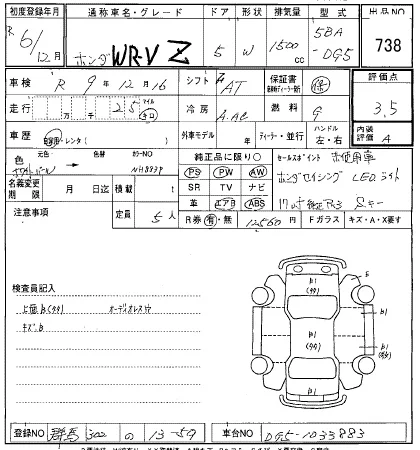 初度登録年月 通称車名・グレード ドア 形状 排気量 型式 出品NO
R6/12月 ホンダ WR-V Z 5 W 1500cc 5BA-DG5 738
車検 R 9年 12月 16 シフト AT 保証書 保 評価点
走行 万 千 25 マイル キロ 冷房 A.AC 燃料 G 3.5
車歴 レンタ( ) 外車モデル 年 ディーラー・並行 ハンドル 左・右 内装評価 A
色 元色 → 色替 カラーNO NH883P
純正品に限り○ セールスポイント 未使用車
PS PW AW ホンダセイシング LEDライト
名義変更期限 月 日迄 積載 t SR TV ナビ
革 エアB ABS 17吋 Sキー
注意事項 定員 5人 R券 有・無 12560円 Fガラス キズ・A・X要す
検査員記入
上面b(タタ) オーディオレス
キズb
b1
(タタ)
b1
b1
(タタ)
b1
b1
登録NO 群馬 302 の 13-59 車台NO DG5-1033883